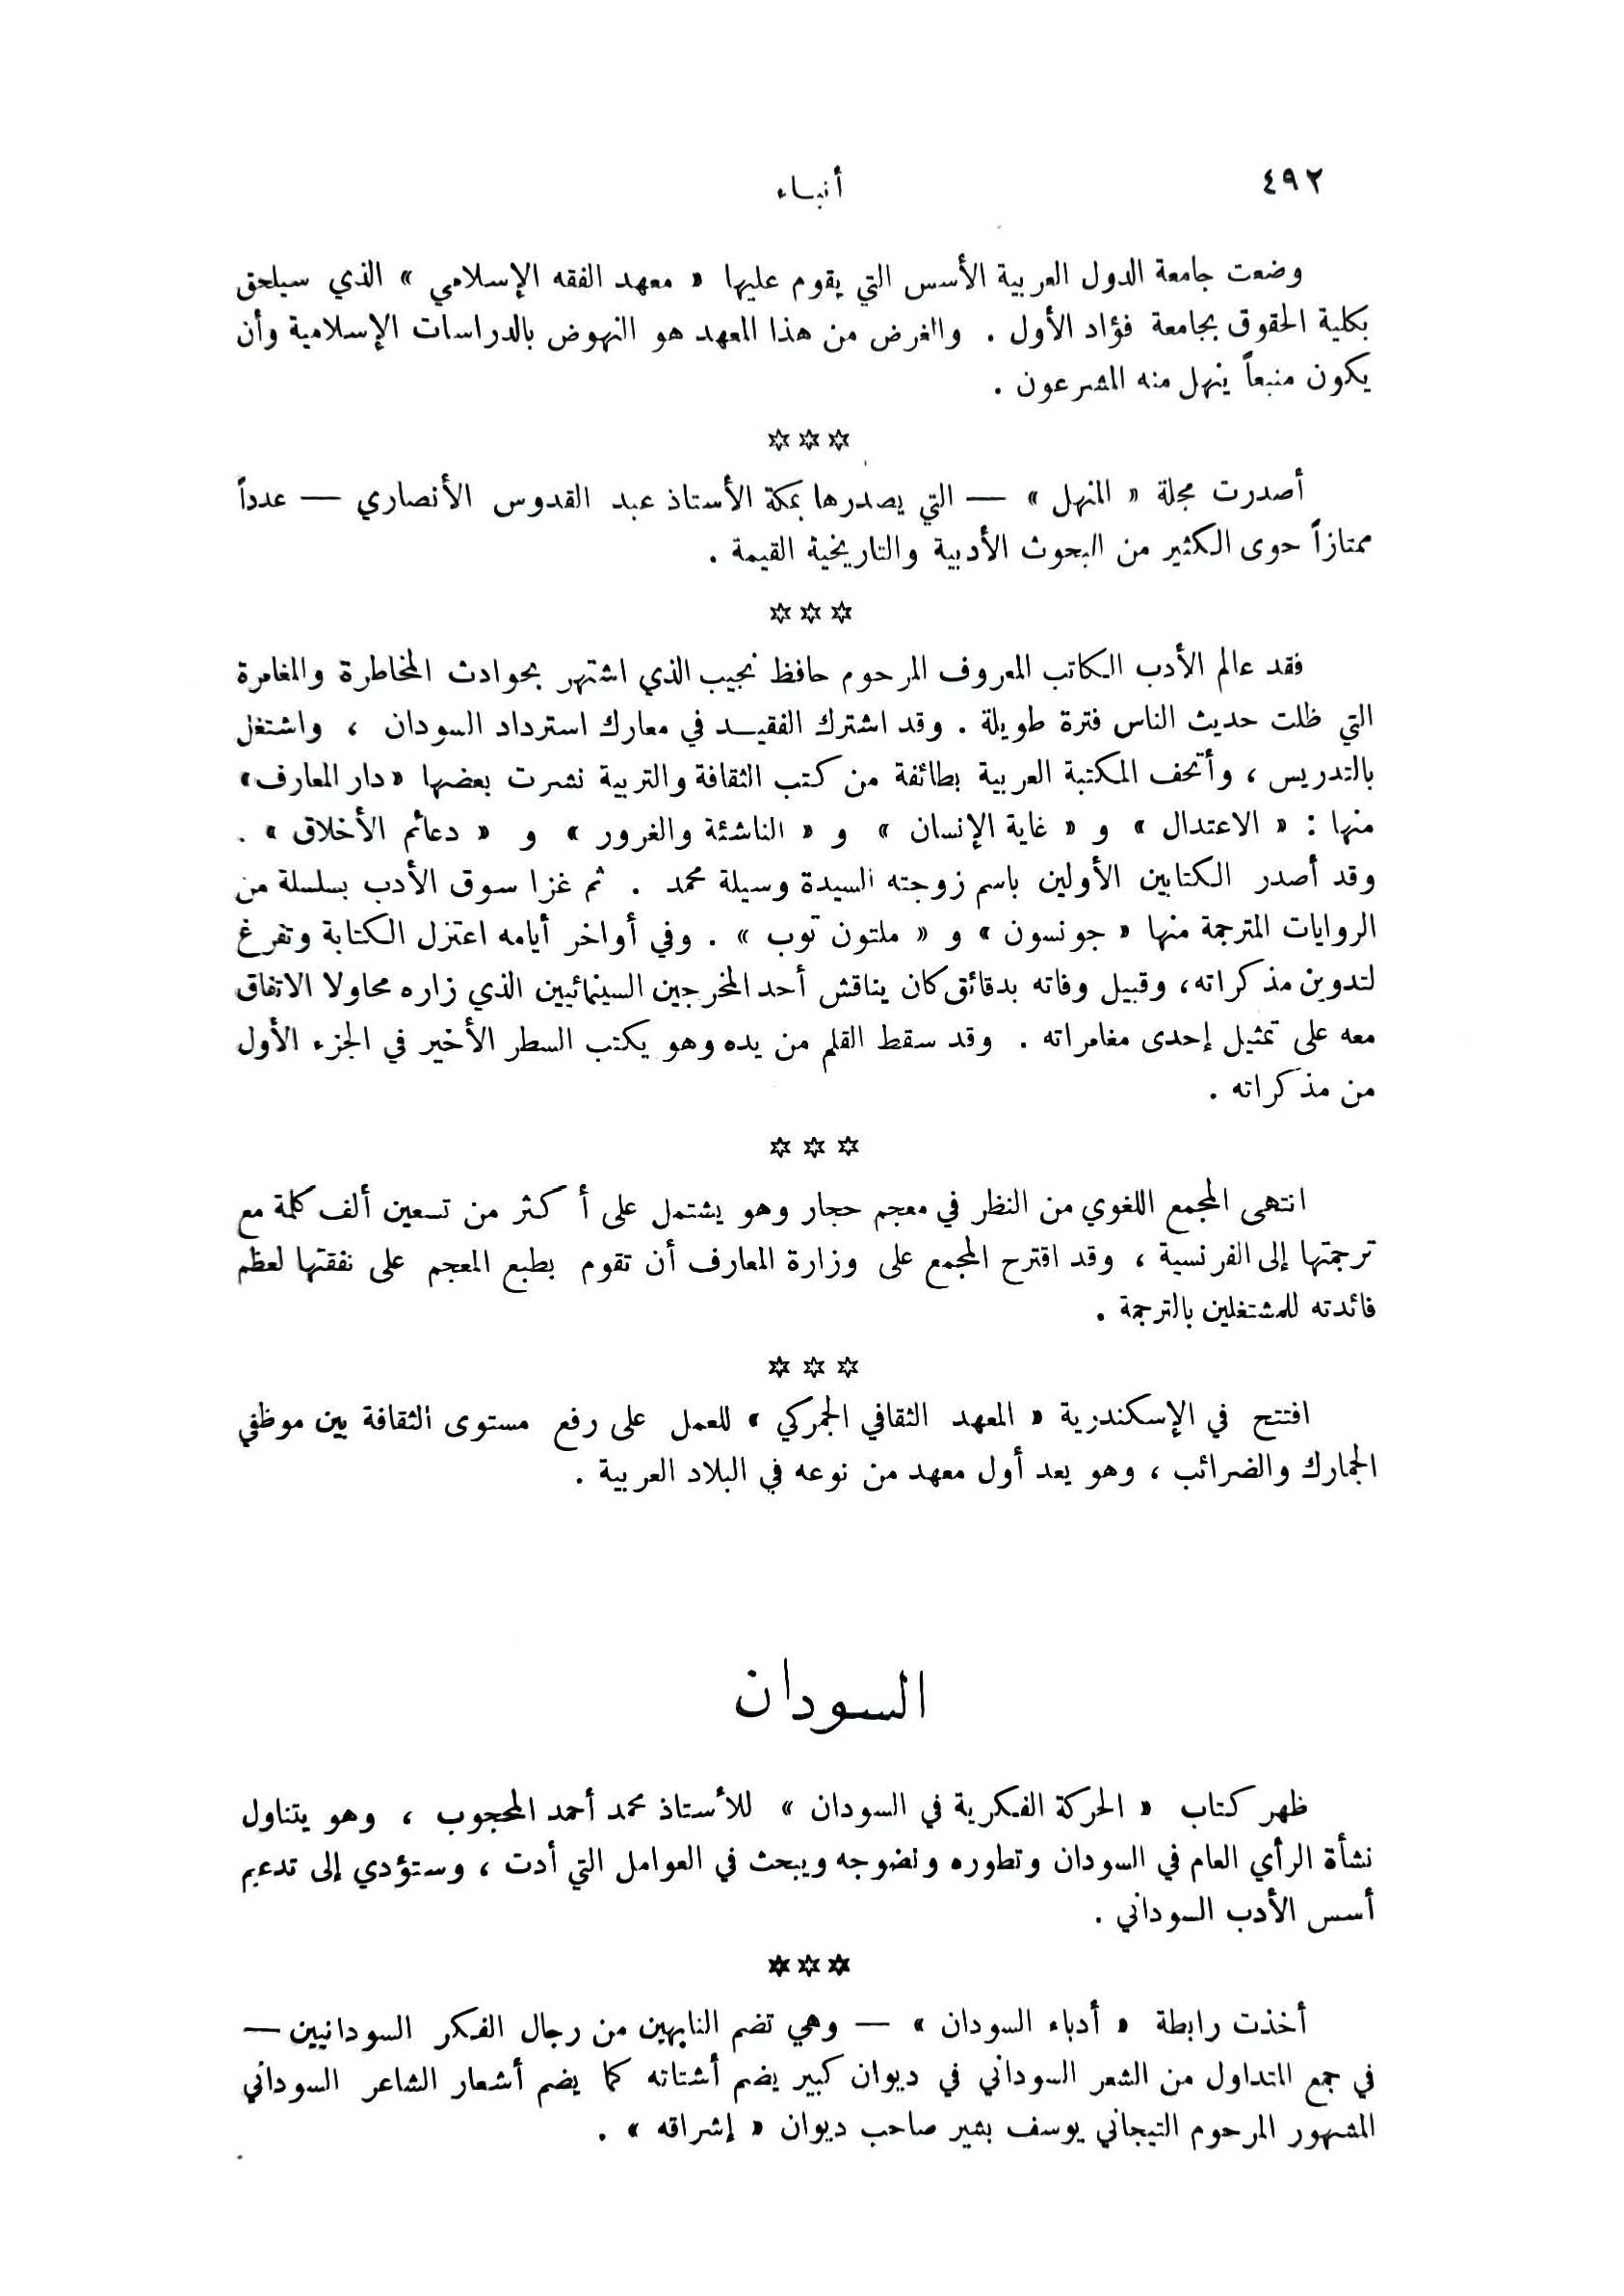 ٤٩٢
أنباء
وضعت جامعة الدول العربية الأسس التي يقوم عليها « معهد الفقه الإسلامي » الذي سيلحق
بكلية الحقوق بجامعة فؤاد الأول . والغرض من هذا المعهد هو النهوض بالدراسات الإسلامية وأن
يكون منبعاً ينهل منه المشرعون .
☆☆☆
أصدرت مجلة « المنهل » — التي يصدرها بمكة الأستاذ عبد القدوس الأنصاري — عدداً
ممتازاً حوى الكثير من البحوث الأدبية والتاريخية القيمة .
☆☆☆
فقد عالم الأدب الكاتب المعروف المرحوم حافظ نجيب الذي اشتهر بحوادث المخاطرة والمغامرة
التي ظلت حديث الناس فترة طويلة . وقد اشترك الفقيد في معارك استرداد السودان ، واشتغل
بالتدريس ، وأتحف المكتبة العربية بطائفة من كتب الثقافة والتربية نشرت بعضها «دار المعارف»
منها : « الاعتدال » و « غاية الإنسان » و « الناشئة والغرور » و « دعائم الأخلاق » .
وقد أصدر الكتابين الأولين باسم زوجته السيدة وسيلة محمد . ثم غزا سوق الأدب بسلسلة من
الروايات المترجمة منها « جونسون » و « ملتون توب » . وفي أواخر أيامه اعتزل الكتابة وتفرغ
لتدوين مذكراته ، وقبيل وفاته بدقائق كان يناقش أحد المخرجين السينمائيين الذي زاره محاولا الاتفاق
معه على تمثيل إحدى مغامراته . وقد سقط القلم من يده وهو يكتب السطر الأخير في الجزء الأول
من مذكراته .
☆☆☆
انتهى المجمع اللغوي من النظر في معجم حجار وهو يشتمل على أكثر من تسعين ألف كلمة مع
ترجمتها إلى الفرنسية ، وقد اقترح المجمع على وزارة المعارف أن تقوم بطبع المعجم على نفقتها لعظم
فائدته للمشتغلين بالترجمة .
☆☆☆
افتتح في الإسكندرية « المعهد الثقافي الجمركي » للعمل على رفع مستوى الثقافة بين موظفي
الجمارك والضرائب ، وهو يعد أول معهد من نوعه في البلاد العربية .
السودان
ظهر كتاب « الحركة الفكرية في السودان » للأستاذ محمد أحمد المحجوب ، وهو يتناول
نشأة الرأي العام في السودان وتطوره ونضوجه ويبحث في العوامل التي أدت ، وستؤدي إلى تدعيم
أسس الأدب السوداني .
☆☆☆
أخذت رابطة « أدباء السودان » — وهي تضم النابهين من رجال الفكر السودانيين —
في جمع المتداول من الشعر السوداني في ديوان كبير يضم أشتاته كما يضم أشعار الشاعر السوداني
المشهور المرحوم التيجاني يوسف بشير صاحب ديوان « إشراقه » .